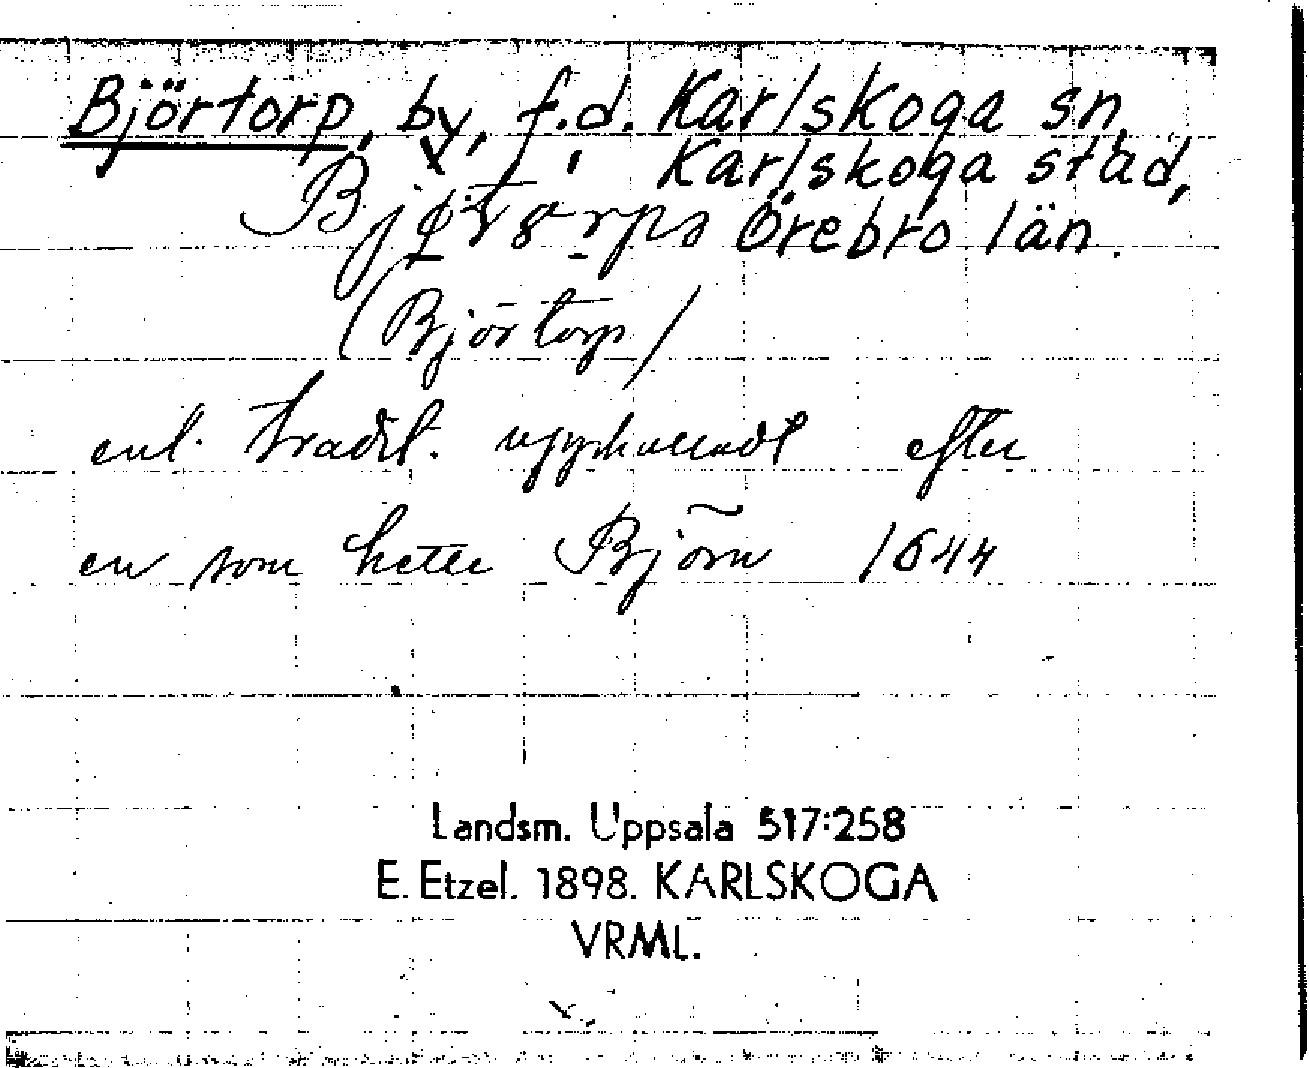 Björtorp, by, f.d. Karlskoga sn,
Karlskoga stad,
Örebro län.
(Björtorp)
enl. tradit. uppkalladt efter
en som hette Björn 1644
Landsm. Uppsala 517:258
E. Etzel. 1898. KARLSKOGA
VRML.